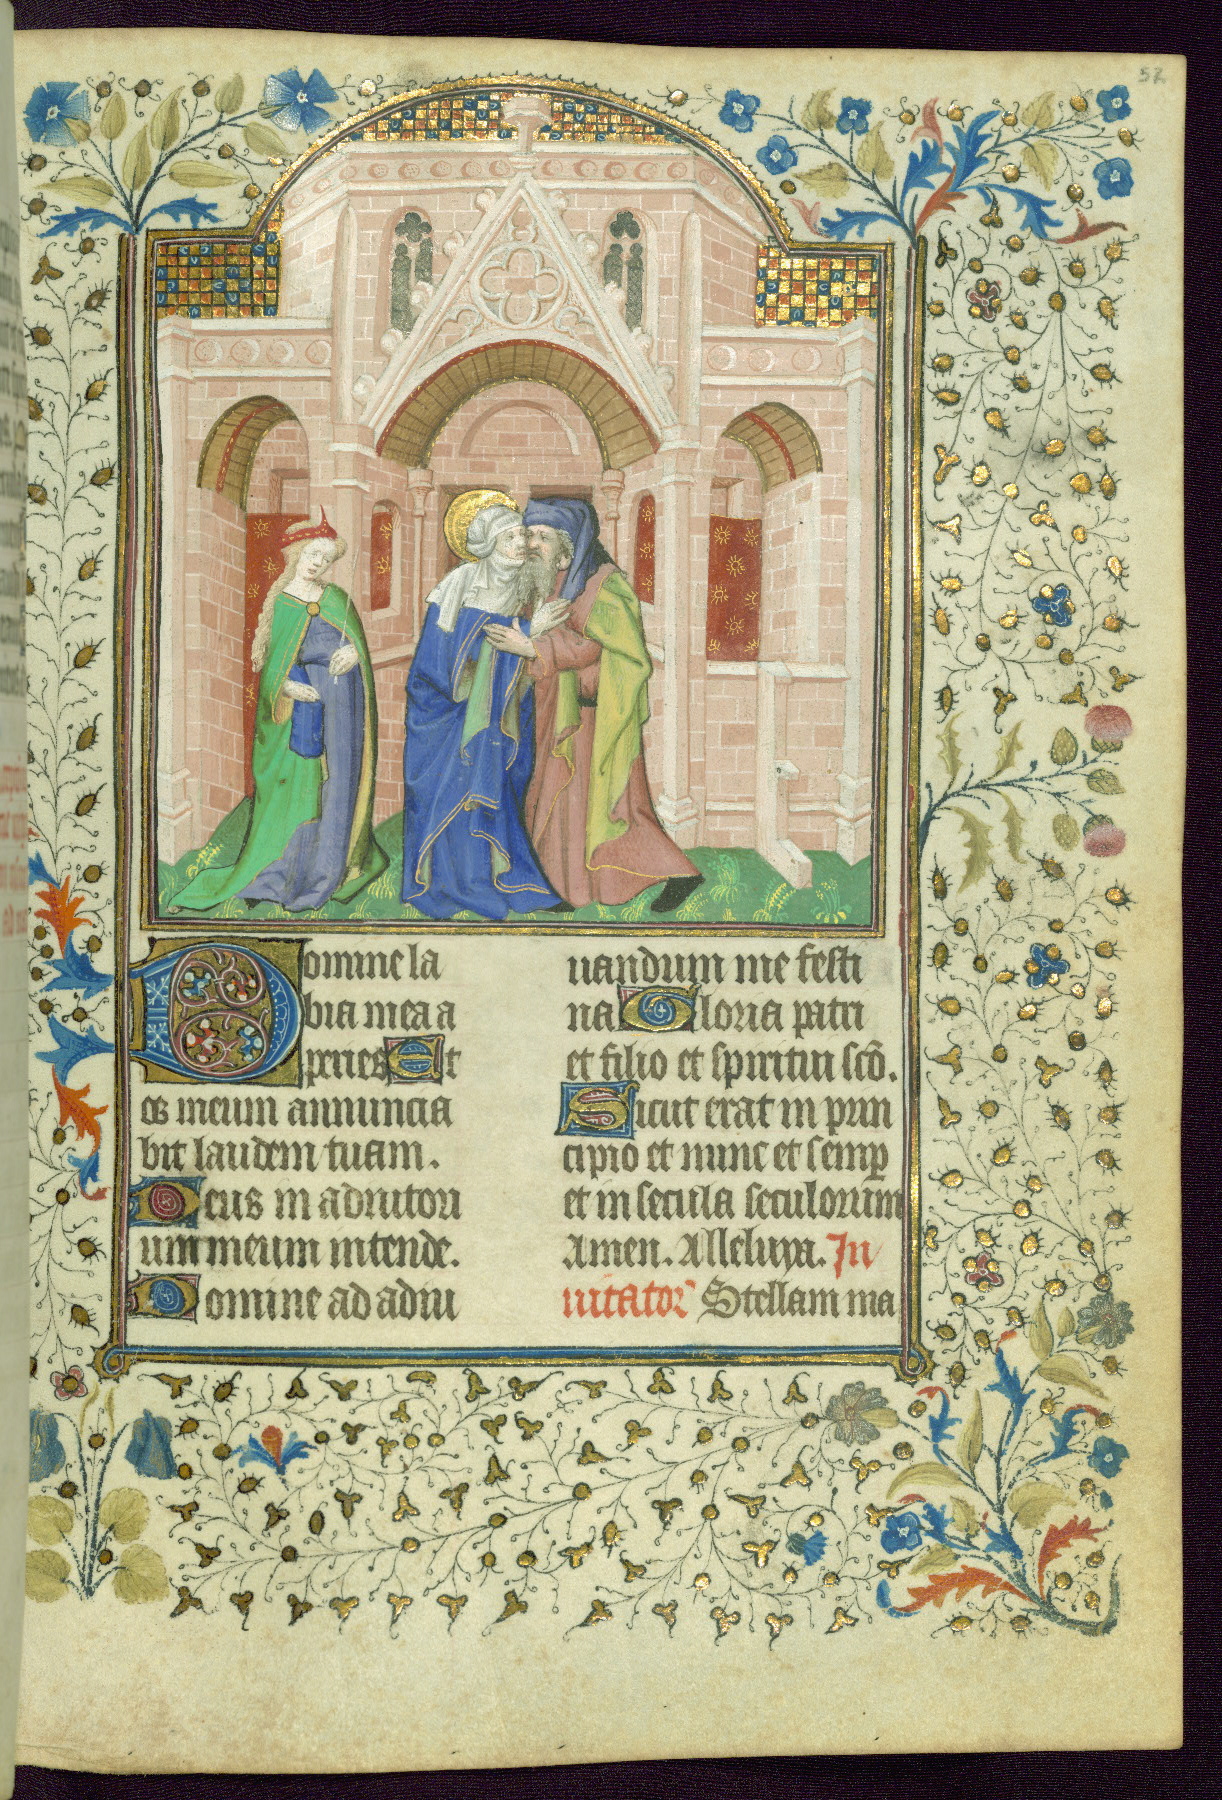 52
Domine la
bia mea a
peries Et
os meum annuncia
bit laudem tuam.
Deus in adiutori
um meum intende.
Domine ad adiu
uandum me festi
na Gloria patri
et filio et spiritui sc̄o.
Sicut erat in prin
cipio et nunc et semp̄
et in secula seculorum
Amen. Alleluya. In
uitator̄ Stellam ma